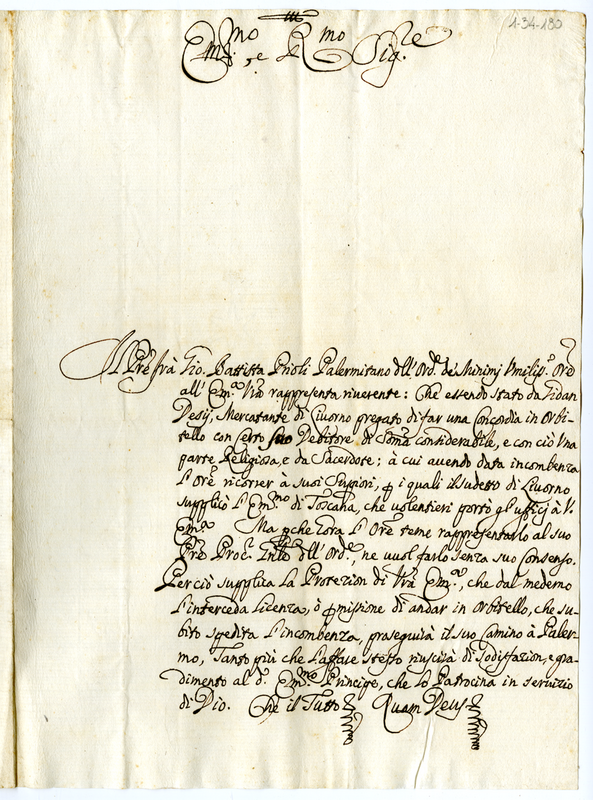 1-34-180
Em.mo e R.mo Sig.re
Il Pre frà Gio. Battista Prioli Palermitano dell'Ord.e de Minimj Umiliss.o Ore
all' Em.a Vra rappresenta riverente: Che essendo stato da
Mercatante di Livorno pregato di far una Concordia in Orbi-
tello con certo suo Debitore di Soma considerabile, e con ciò una
parte Religiosa, e da Sacerdote: à cui avendo data incombenza
l'Ore ricorrer à suoi Supiori, p i quali il sudetto di Livorno
supplicò l'Em.mo di Toscana, che volentieri portò gl'ufficj à V.
Em.a Ma pche l'Ore teme rappresentarlo al suo
Pre Proc.e dell'Ord.e, ne vuol farlo senza suo Consenso.
Perciò supplica la Protezion di Vra Em.a, che dal medemo
l'interceda licenza, ò pmissione di andar in Orbitello, che su-
bito spedita l'incombenza, proseguirà il suo Camino à Paler-
mo, Tanto più che l'affare stesso riuscirà di sodisfazion, e gra-
dimento al d.o Em.mo Principe, che lo Patrocina in servizio
di Dio. Che il Tutto Quam Deus